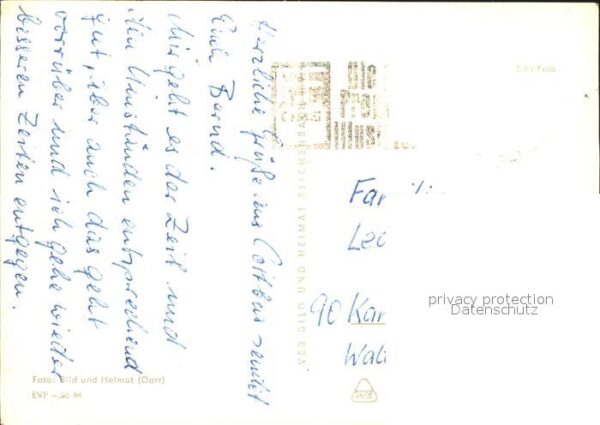 Herzliche Grüße aus Cottbus sendet
Euch Bernd.
Mir geht es der Zeit und
den Umständen entsprechend
gut, aber auch das geht
vorrüber und ich gehe wieder
besseren Zeiten entgegen.
Echt Foto
VEB BILD UND HEIMAT REICHENBACH
Fam
Leo
90 Kar
Wal
privacy protection
Datenschutz
Foto: Bild und Heimat (Darr)
EVP
M